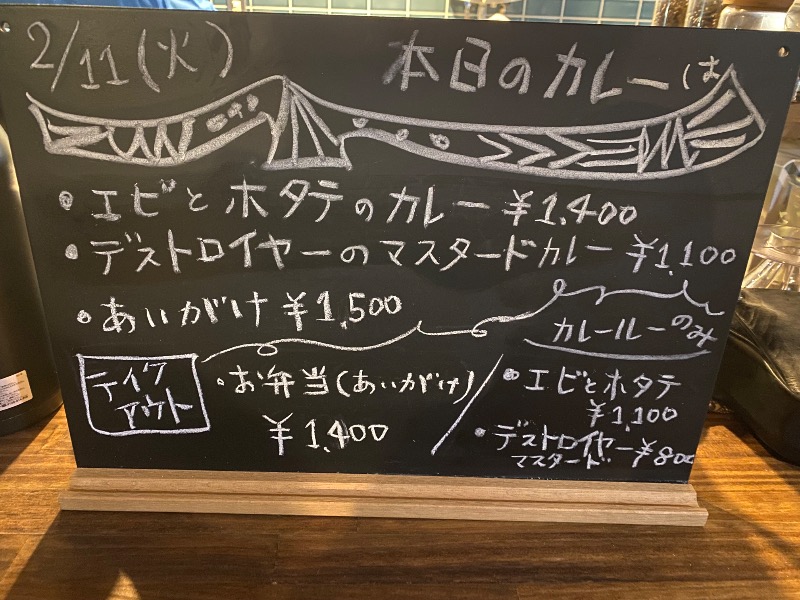 2/11(火) 本日のカレーは
・エビとホタテのカレー ¥1,400
・デストロイヤーのマスタードカレー ¥1,100
・あいがけ ¥1,500
テイク
アウト
・お弁当(あいがけ)
¥1,400
カレールーのみ
・エビとホタテ
¥1,100
・デストロイヤー
マスタード ¥800